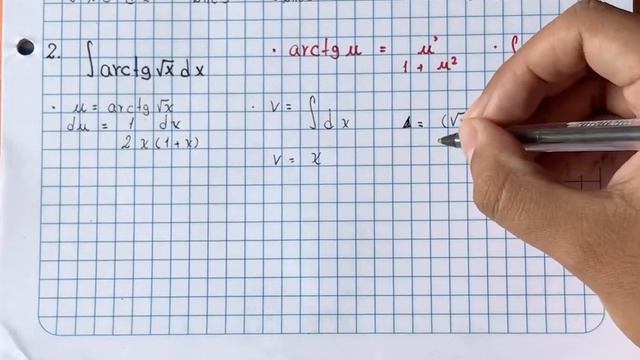 2. ∫ arctg √x dx
· arctg u = u' / 1 + u²
· ∫
· u = arctg √x
du = 1 / 2 x (1 + x) dx
· v = ∫ dx
v = x
= (√